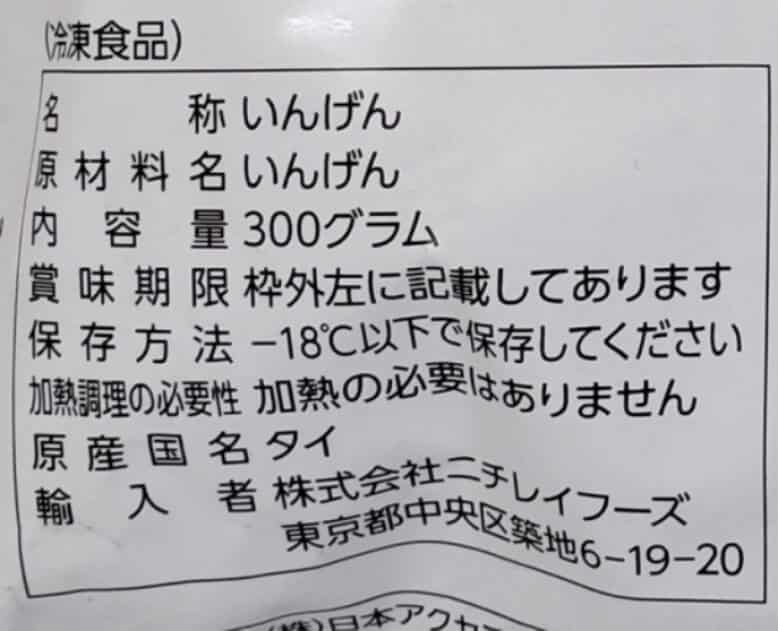 (冷凍食品)
名称 いんげん
原材料名 いんげん
内容量 300グラム
賞味期限 枠外左に記載してあります
保存方法 −18℃以下で保存してください
加熱調理の必要性 加熱の必要はありません
原産国名 タイ
輸入者 株式会社ニチレイフーズ
東京都中央区築地6−19−20
(株)日本アクセ